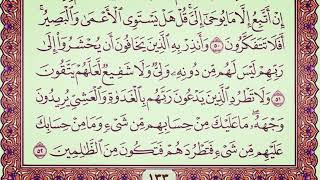 إِنْ أَتَّبِعُ إِلَّا مَا يُوحَىٰ إِلَيَّ قُلْ هَلْ يَسْتَوِي الْأَعْمَىٰ وَالْبَصِيرُ
أَفَلَا تَتَفَكَّرُونَ ٥٠ وَأَنذِرْ بِهِ الَّذِينَ يَخَافُونَ أَن يُحْشَرُوا إِلَىٰ
رَبِّهِمْ لَيْسَ لَهُم مِّن دُونِهِ وَلِيٌّ وَلَا شَفِيعٌ لَّعَلَّهُمْ يَتَّقُونَ
٥١ وَلَا تَطْرُدِ الَّذِينَ يَدْعُونَ رَبَّهُم بِالْغَدَاةِ وَالْعَشِيِّ يُرِيدُونَ
وَجْهَهُ مَا عَلَيْكَ مِنْ حِسَابِهِم مِّن شَيْءٍ وَمَا مِنْ حِسَابِكَ
عَلَيْهِم مِّن شَيْءٍ فَتَطْرُدَهُمْ فَتَكُونَ مِنَ الظَّالِمِينَ ٥٢
١٣٣